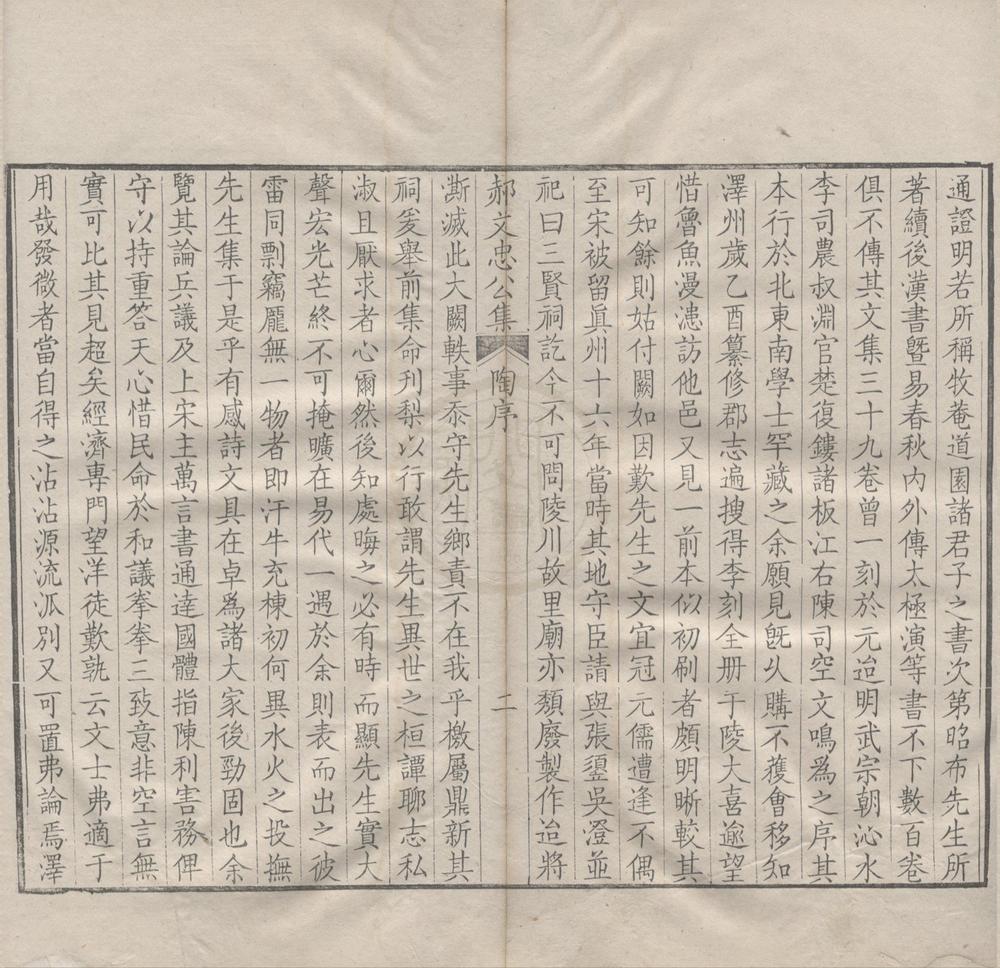 通證明若所稱牧菴道園諸君子之書次第昭布先生所
著續後漢書曁易春秋內外傳太極演等書不下數百卷
俱不傳其文集三十九卷曾一刻於元迨明武宗朝沁水
李司農叔淵官楚復鏤諸板江右陳司空文鳴爲之序其
本行於北東南學士罕藏之余願見旣久購不獲會移知
澤州歲乙酉纂修郡志遍搜得李刻全册于陵大喜逾望
惜魯魚漫漶訪他邑又見一前本似初刷者頗明晰較其
可知餘則姑付闕如因歎先生之文宜冠元儒遭逢不偶
至宋被留眞州十六年當時其地守臣請與張𢒰吳澄並
祀曰三賢祠訖今不可問陵川故里廟亦類廢製作迨將
郝文忠公集 陶序 二
澌滅此大闕軼事忝守先生鄉責不在我乎檄屬鼎新其
祠爰舉前集命刊梨以行敢謂先生異世之桓譚聊志私
淑且厭求者心爾然後知處晦之必有時而顯先生實大
聲宏光芒終不可掩曠在易代一遇於余則表而出之彼
雷同剽竊龎無一物者卽汗牛充棟初何異水火之投撫
先生集于是乎有感詩文具在卓爲諸大家後勁固也余
覽其論兵議及上宋主萬言書通達國體指陳利害務俾
守以持重答天心惜民命於和議拳拳三致意非空言無
實可比其見超矣經濟專門望洋徒歎孰云文士弗適于
用哉發微者當自得之沾沾源流泒別又可置弗論焉澤